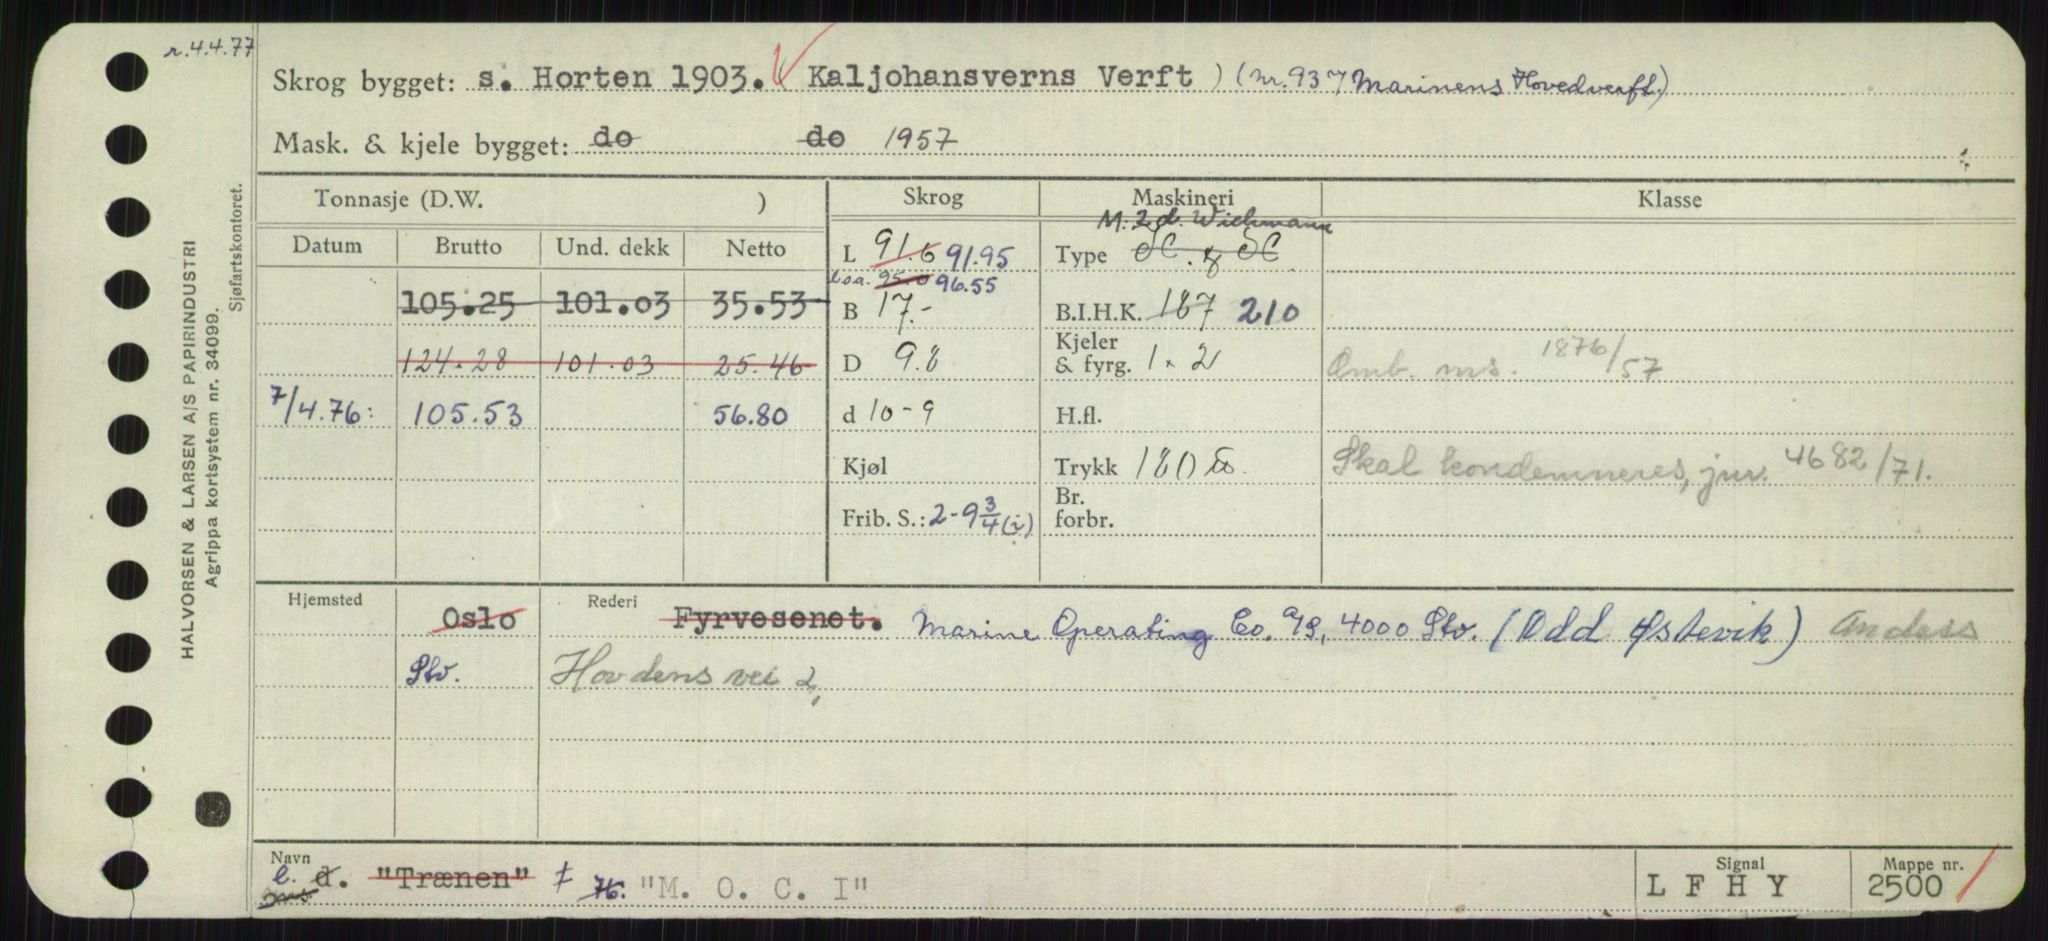 r.4.4.77
Skrog bygget: s. Horten 1903. ( Kaljohansverns Verft ) (nr. 937 Marinens Hovedverft.)
Mask. & kjele bygget: do do 1957
Tonnasje (D.W. ) Skrog Maskineri Klasse
Datum Brutto Und. dekk Netto
M. 2 d. Wichmann
L 91.6 91.95 Type
Loa. 95.0 96.55
105.25 101.03 35.53 B 17.- B.I.H.K. 187 210
124.28 101.03 25.46 D 9.8 Kjeler & fyrg. 1 x 2 Omb. ms. 1876/57
7/4.76: 105.53 56.80 d 10-9 H.fl.
Kjøl Trykk 180 Skal kondemneres, jnr. 4682/71.
Frib. S.: 2-9 3/4 (i) Br. forbr.
Hjemsted Oslo Rederi Fyrvesenet. Marine Operating Co. A/S, 4000 Stv. (Odd Østevik)
Stv. Hovdens vei 2,
Navn Signal Mappe nr.
e. d. "Trænen" ‡ 76: "M. O. C. I" L F H Y 2500
HALVORSEN & LARSEN A/S PAPIRINDUSTRI
Agrippa kortsystem nr. 34099.
Sjøfartskontoret.